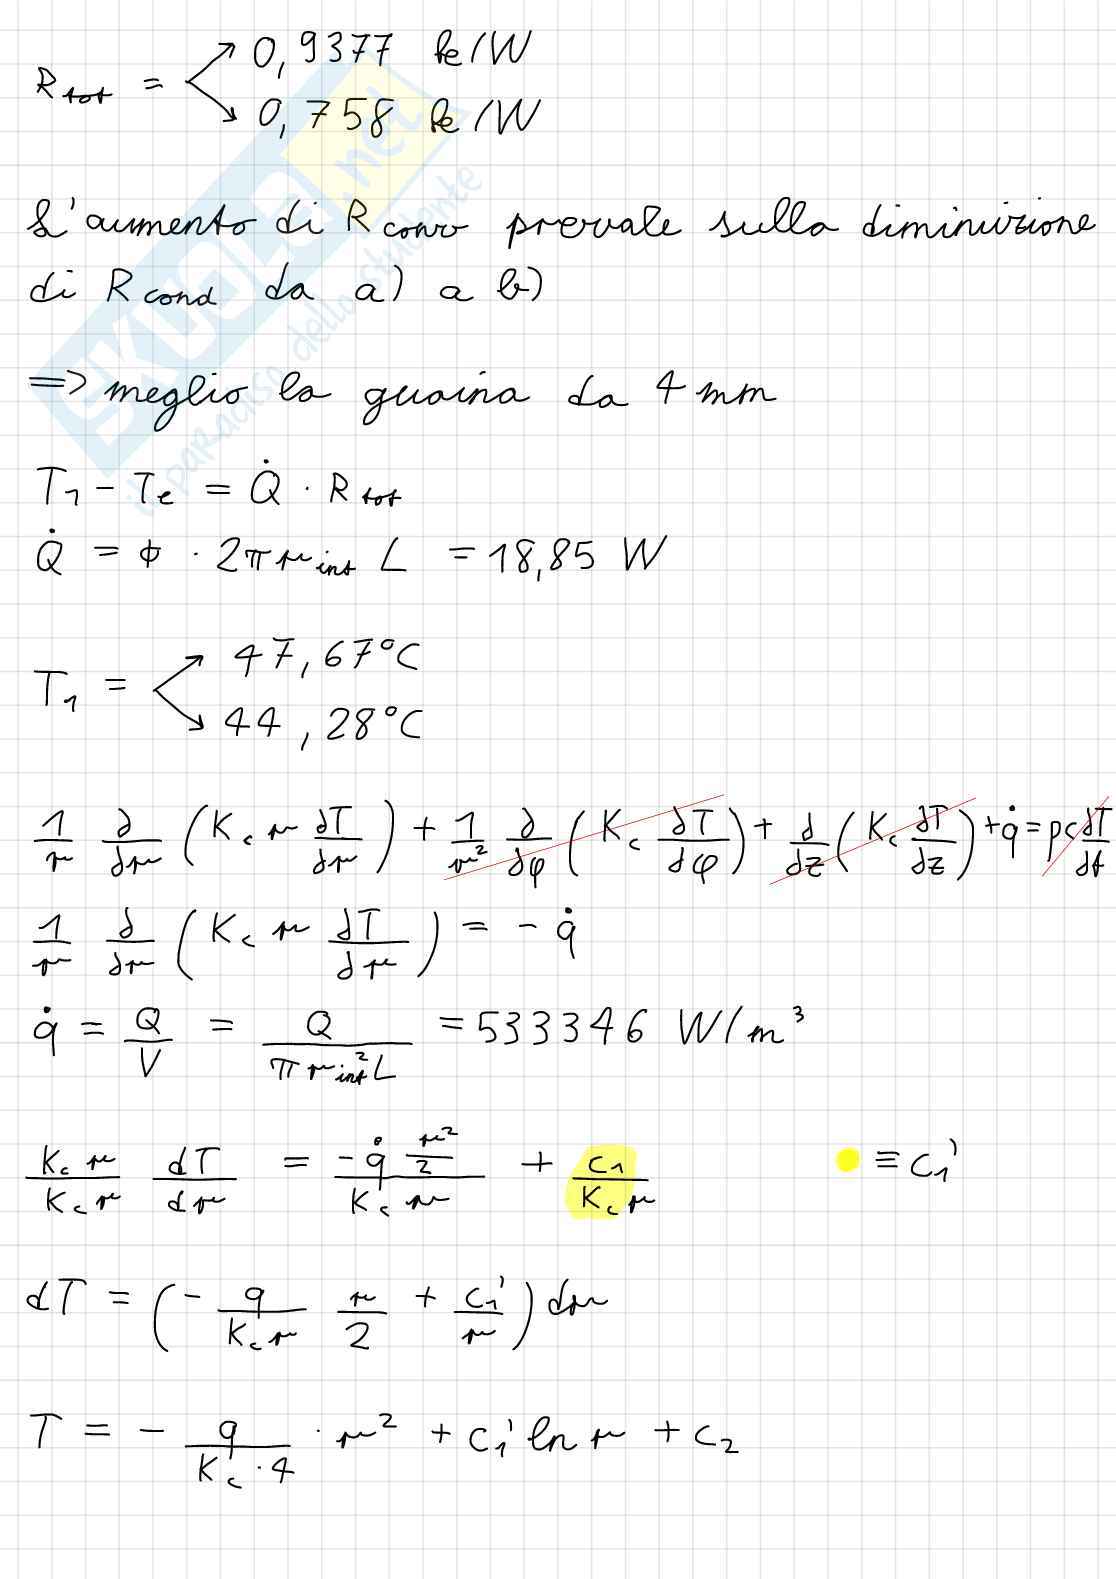 R tot = 0,9377 k/W
0,758 k/W
L'aumento di R conv prevale sulla diminuizione
di R cond da a) a b)
=> meglio la guaina da 4 mm
T₁ - Te = Q̇ · R tot
Q̇ = ϕ · 2π r int L = 18,85 W
T₁ = 47,67°C
44,28°C
1/r ∂/∂r (Kc r ∂T/∂r) + 1/r² ∂/∂φ (Kc ∂T/∂φ) + ∂/∂z (Kc ∂T/∂z) + q̇ = ρc ∂T/∂t
1/r ∂/∂r (Kc r ∂T/∂r) = - q̇
q̇ = Q/V = Q/(π r int² L) = 533346 W/m³
Kc r/Kc r dT/dr = -q̇ r²/2 / Kc r + c₁/Kc r ≡ c₁'
dT = (- q/Kc r r/2 + c₁'/r) dr
T = - q/Kc·4 · r² + c₁' ln r + c₂
SKUOLA.net
il paradiso dello studente